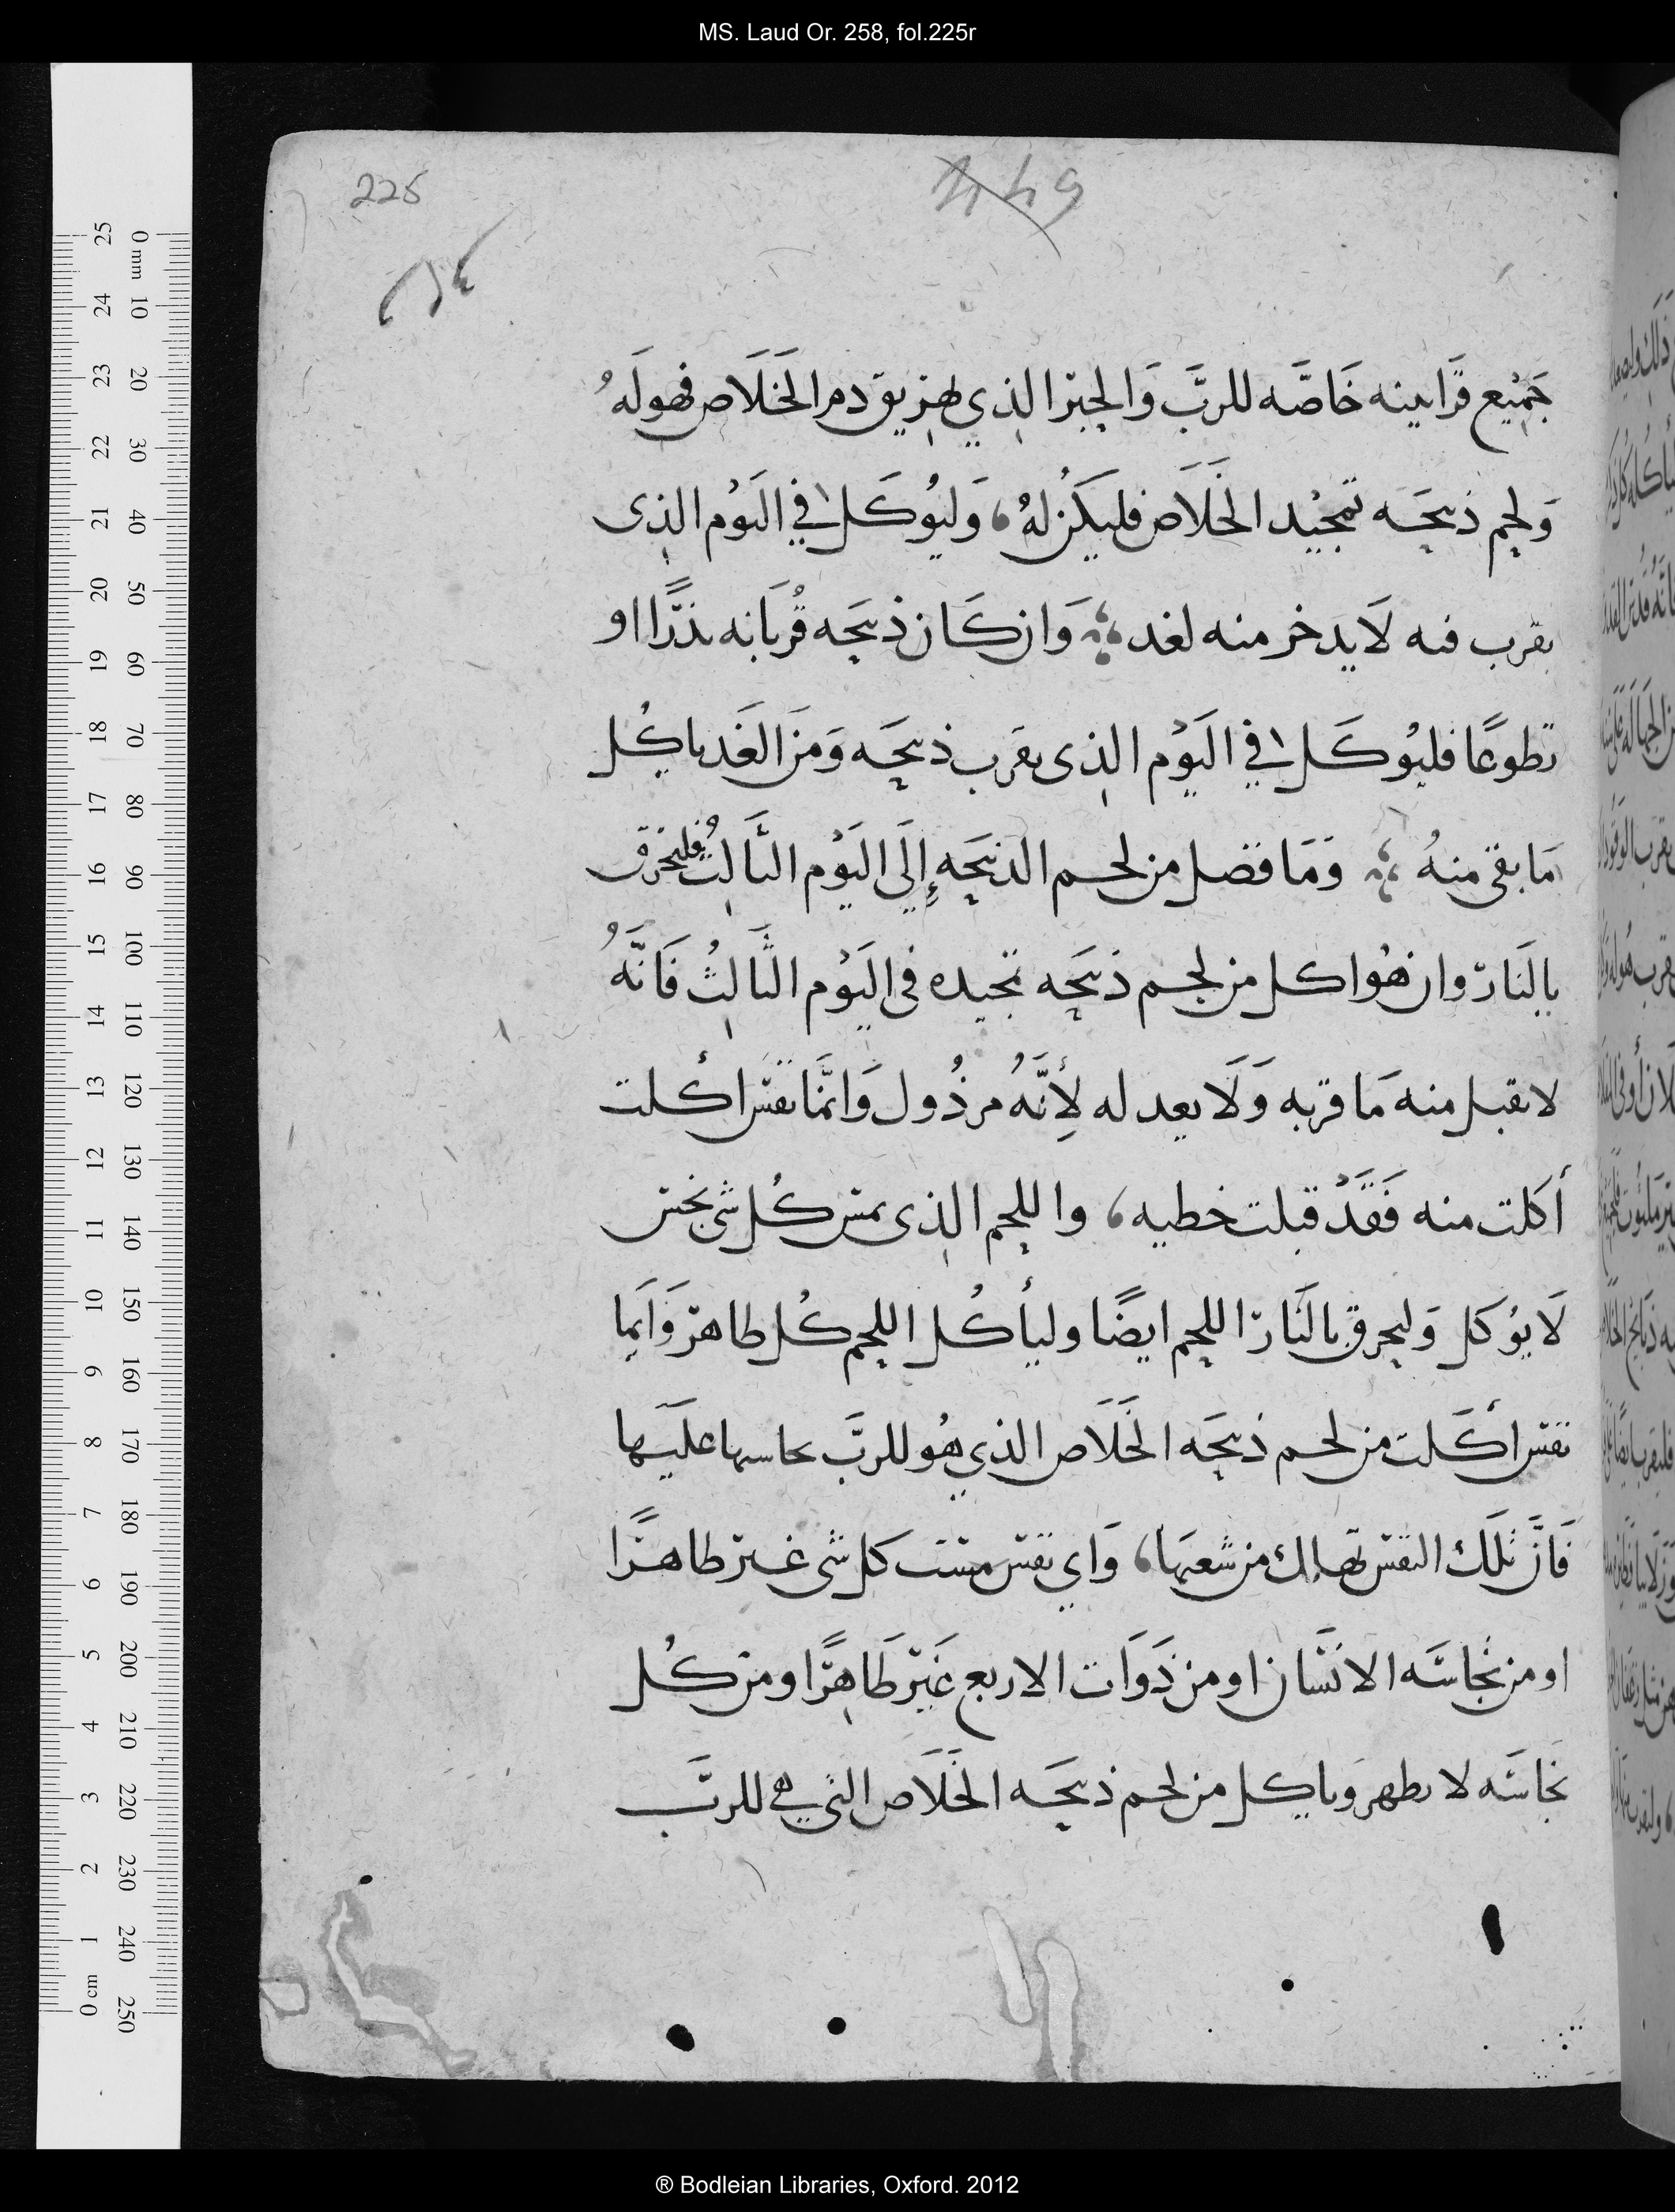 MS. Laud Or. 258, fol.225r
225
449
جَمِيْع قرَابينه خَاصَّه للربَّ وَالحِبرَ الذِي يهرِيق دم الخَلَاص فهو لَهُ
وَلحم ذبيحَه تمجيْد الخَلَاص فليَكُن لهُ، وَليُوكَل في اليَوْم الذِى
يقرب فيه لَا يدخر منه لغد ؛ وَان كَان ذبيحَه قُربَانه نذرًا او
تطوعًا فليُوكَل في اليَوْم الذِى يقرب ذبيحَه وَمنَ الغَد ياكُل
مَا بقى منهُ ؛ وَمَا فضل من لحم الذبيحَه إِلَى اليَوْم الثَالِث فليحرق
بالنَار وان هُو اكل من لحم ذبيحَه تمجيده فى اليَوْم الثَالِثُ فَانَّهُ
لا يقبل منه مَا قربه وَلَا يعد له لِأَنَّهُ مرذُول وَايمَّا نفس اكُلت
أكَلت منه فَقَدْ قبلت خطيه، واللحم الذِى يمس كُل شى نجس
لَا يُوكل وَليحرق بالنَار اللحم ايضًا وليأكُل اللحم كُل طاهر وَايمَا
نفس أكَلت من لحم ذبيحَه الخَلَاص الذي هُو للربَّ نجاستها عليَها
فَانَّ تلَك النفس تهلك من شعبهَا، وَاي نفس مسَّت كل شى غير طاهرًا
او من نجاسَه الانسَان او من ذَوَات الاربع غَير طَاهرًا ومن كُل
نجَاسَه لا يطهر وياكل من لحم ذبيحَه الخَلَاص التي هي للربَّ
® Bodleian Libraries, Oxford. 2012